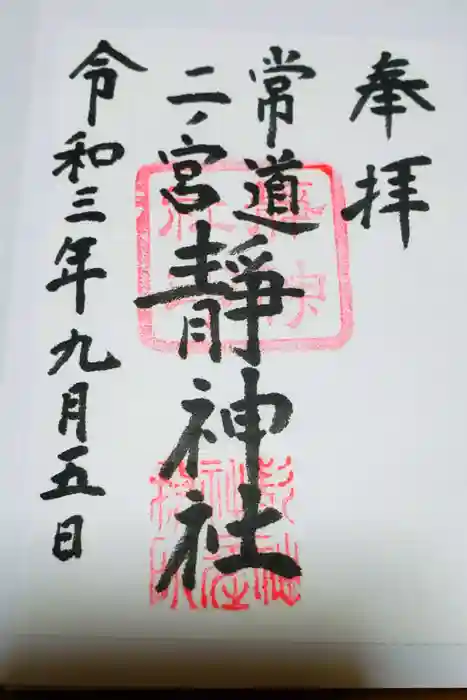 奉拝
常道
二ノ宮
靜神社
令和三年九月五日